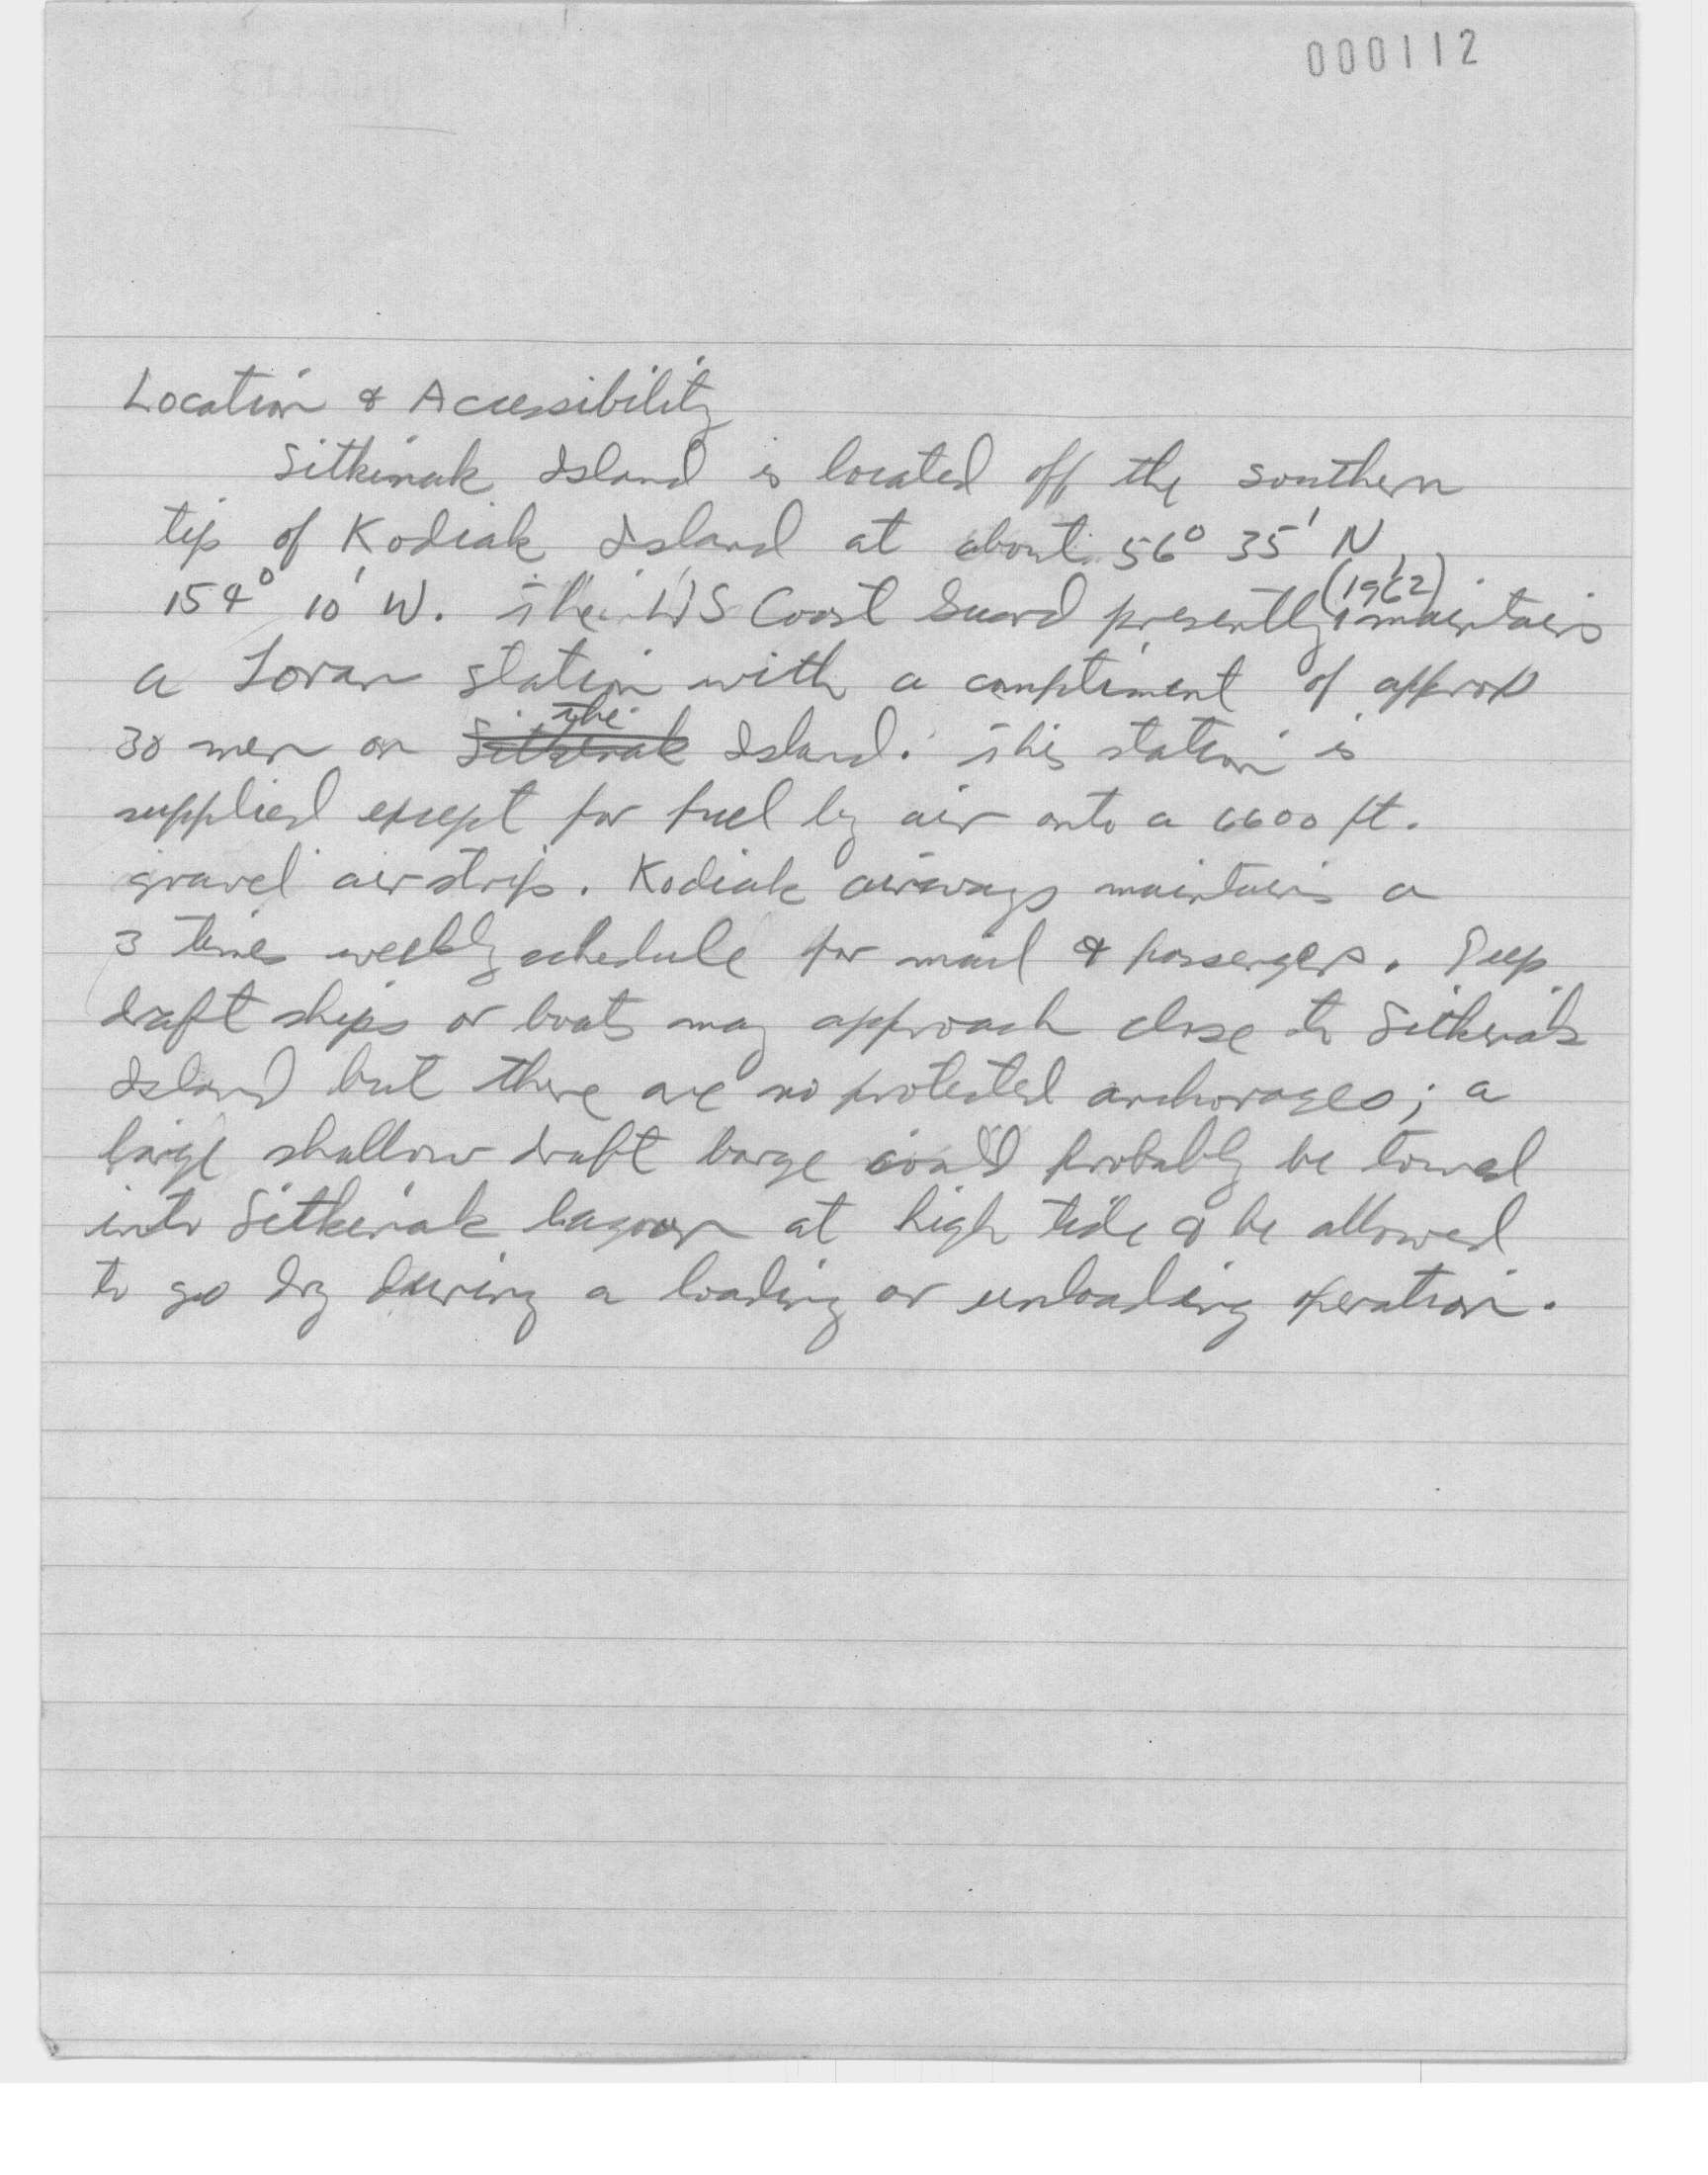 000112
Location & Accessibility
Sitkinak Island is located off the southern
tip of Kodiak Island at about 56° 35' N,
154° 10' W. The US Coast Guard presently (1962) maintains
a Loran station with a compliment of approx
30 men on Sitkinak the Island. This station is
supplied except for fuel by air onto a 6600 ft.
gravel airstrip. Kodiak airways maintains a
3 times weekly schedule for mail & passengers. Deep
draft ships or boats may approach close to Sitkinak
Island but there are no protected anchorages; a
large shallow draft barge could probably be towed
into Sitkinak lagoon at high tide & be allowed
to go dry during a loading or unloading operation.